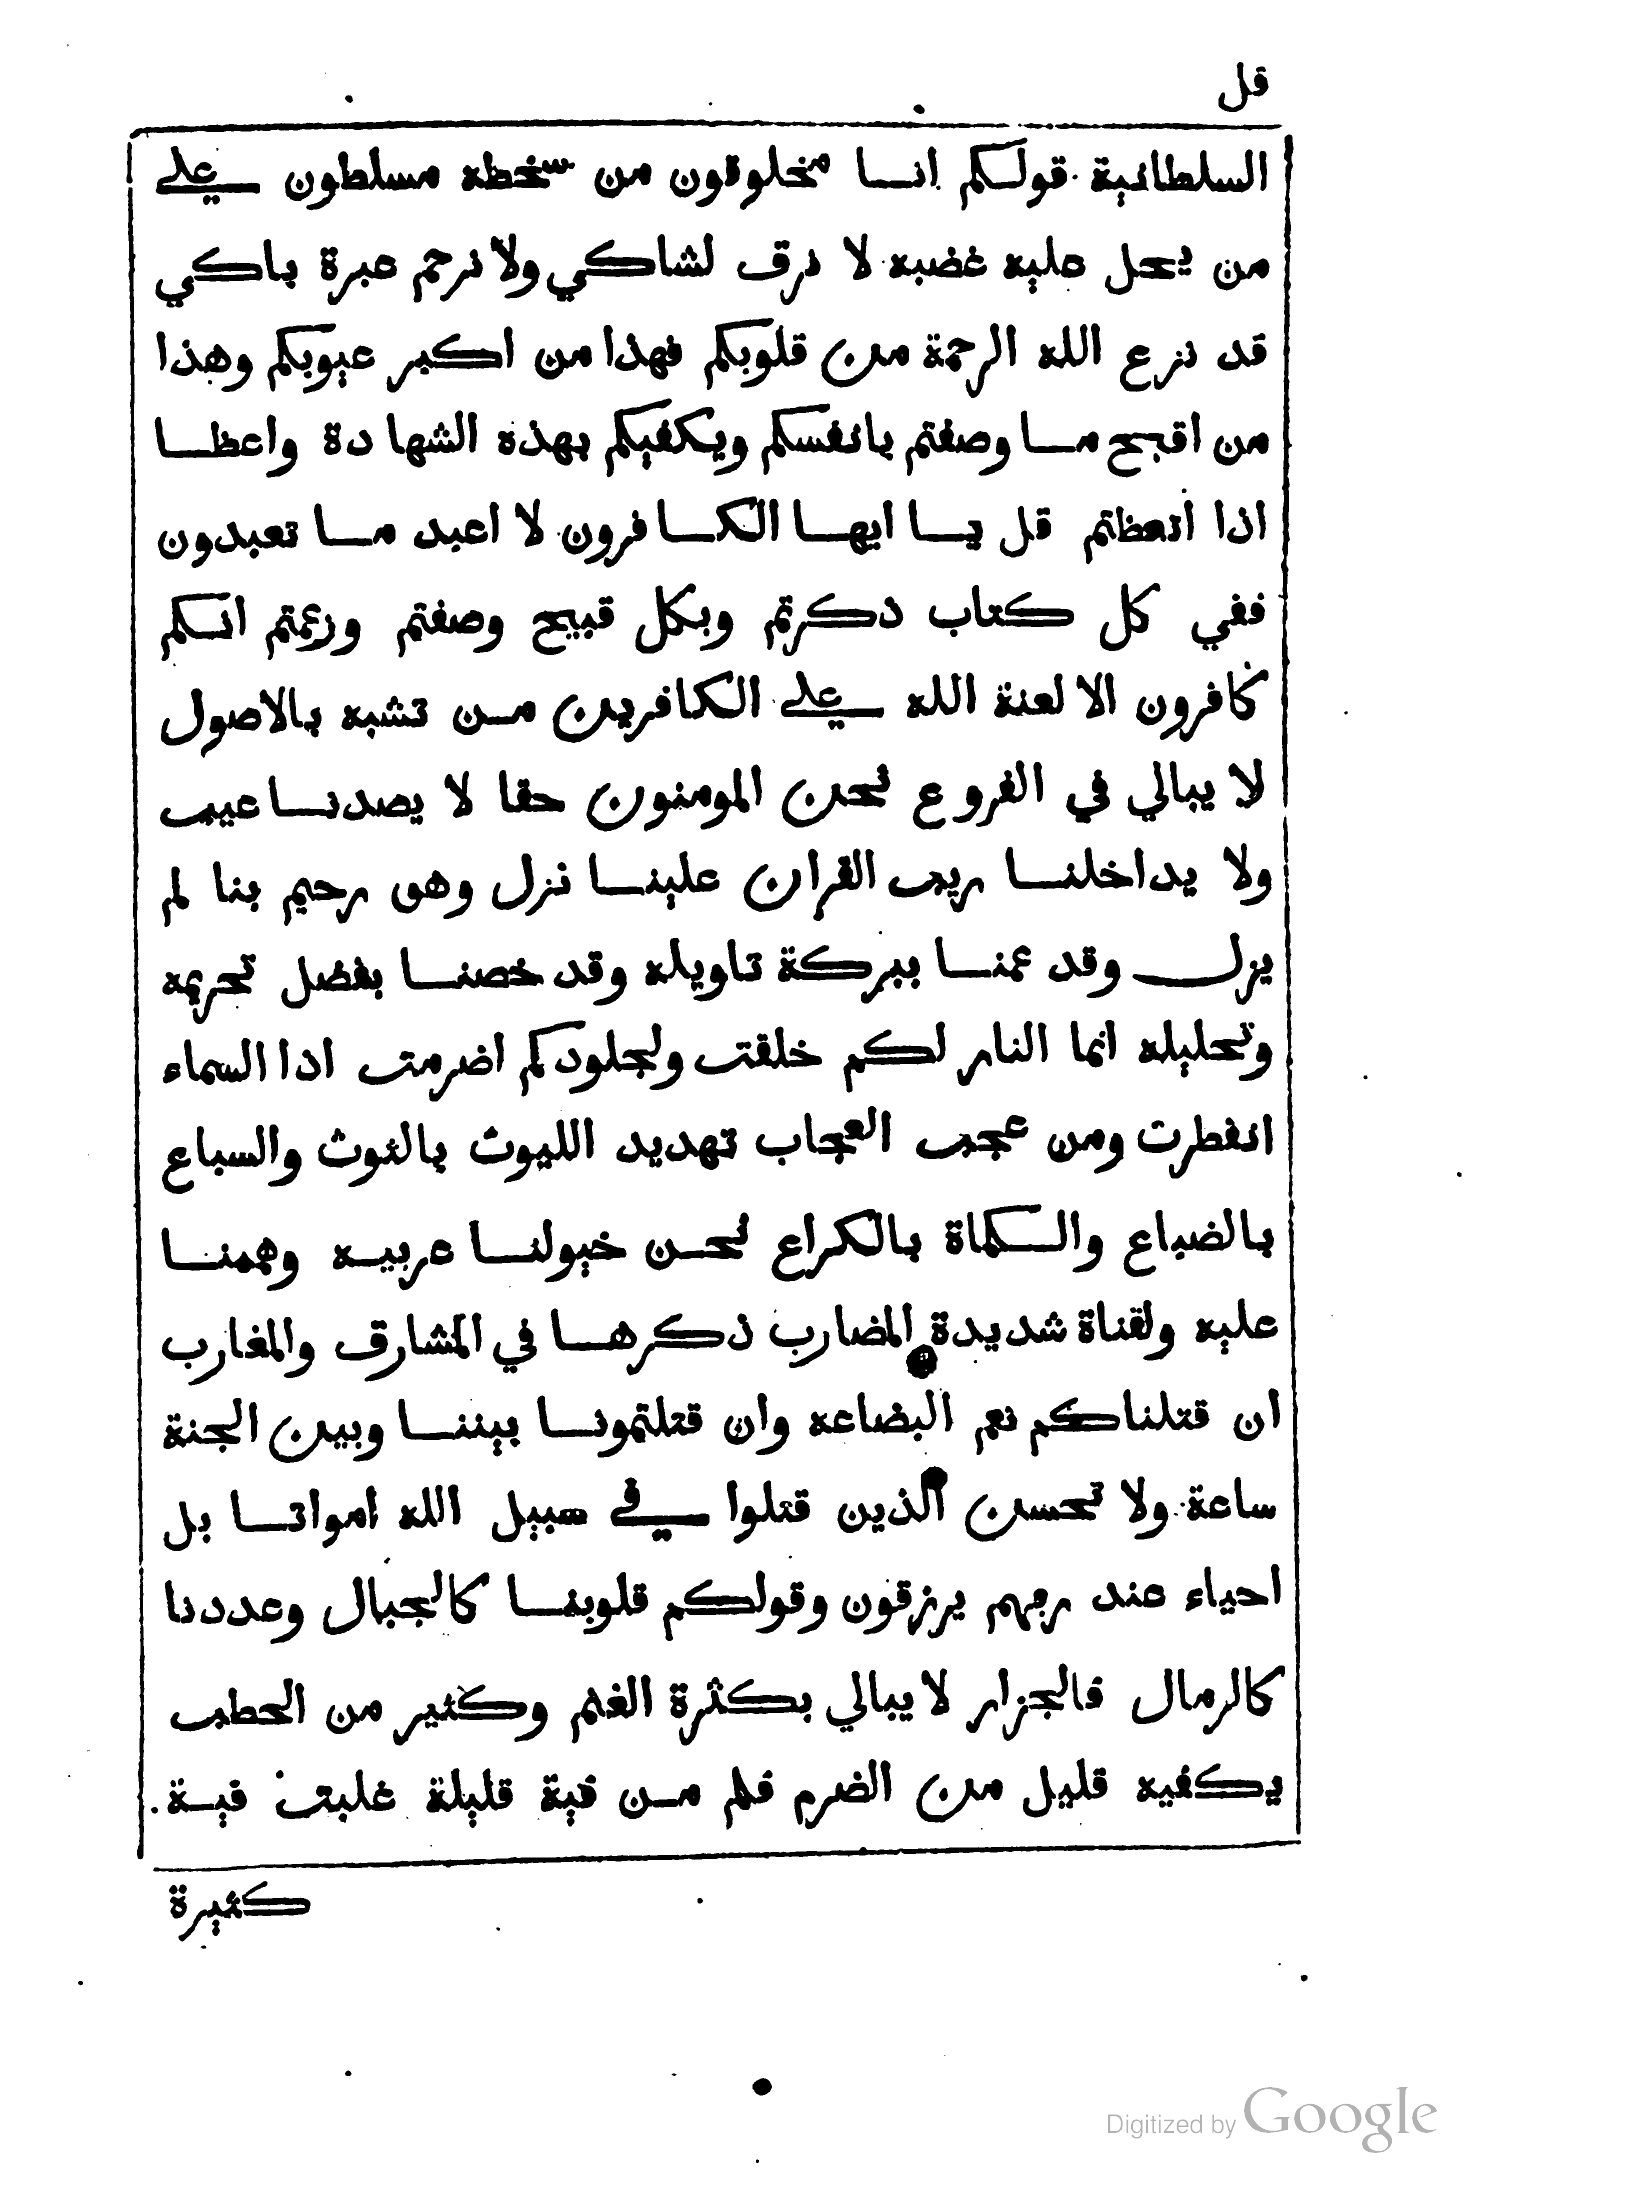 قل
السلطانية قولكم انا مخلوقون من سخطه مسلطون على
من يحل عليه غضبه لا نرق لشاكي ولا نرحم عبرة باكي
قد نزع الله الرحمة من قلوبكم فهذا من اكبر عيوبكم وهذا
من اقبح ما وصفتم بانفسكم ويكفيكم بهذه الشهادة واعظا
اذا اتعظتم قل يا ايها الكافرون لا اعبد ما تعبدون
ففي كل كتاب ذكرتم وبكل قبيح وصفتم وزعمتم انكم
كافرون الا لعنة الله على الكافرين من تشبه بالاصول
لا يبالي في الفروع نحن المومنون حقا لا يصدنا عيب
ولا يداخلنا ريب القران علينا نزل وهو رحيم بنا لم
يزل وقد عمنا ببركة تاويله وقد خصنا بفضل تحريمه
وتحليله انما النار لكم خلقت ولجلودكم اضرمت اذا السماء
انفطرت ومن عجب العجاب تهديد الليوث بالتوث والسباع
بالضباع والكماة بالكراع نحن خيولنا عربيه وهممنا
عليه ولقناة شديدة المضارب ذكرها في المشارق والمغارب
ان قتلناكم نعم البضاعه وان قتلتمونا بيننا وبين الجنة
ساعة ولا تحسبن الذين قتلوا في سبيل الله امواتا بل
احياء عند ربهم يرزقون وقولكم قلوبنا كالجبال وعددنا
كالرمال فالجزار لا يبالي بكثرة الغنم وكثير من الحطب
يكفيه قليل من الضرم فلم من فية قليلة غلبت فية
كثيرة
Digitized by Google